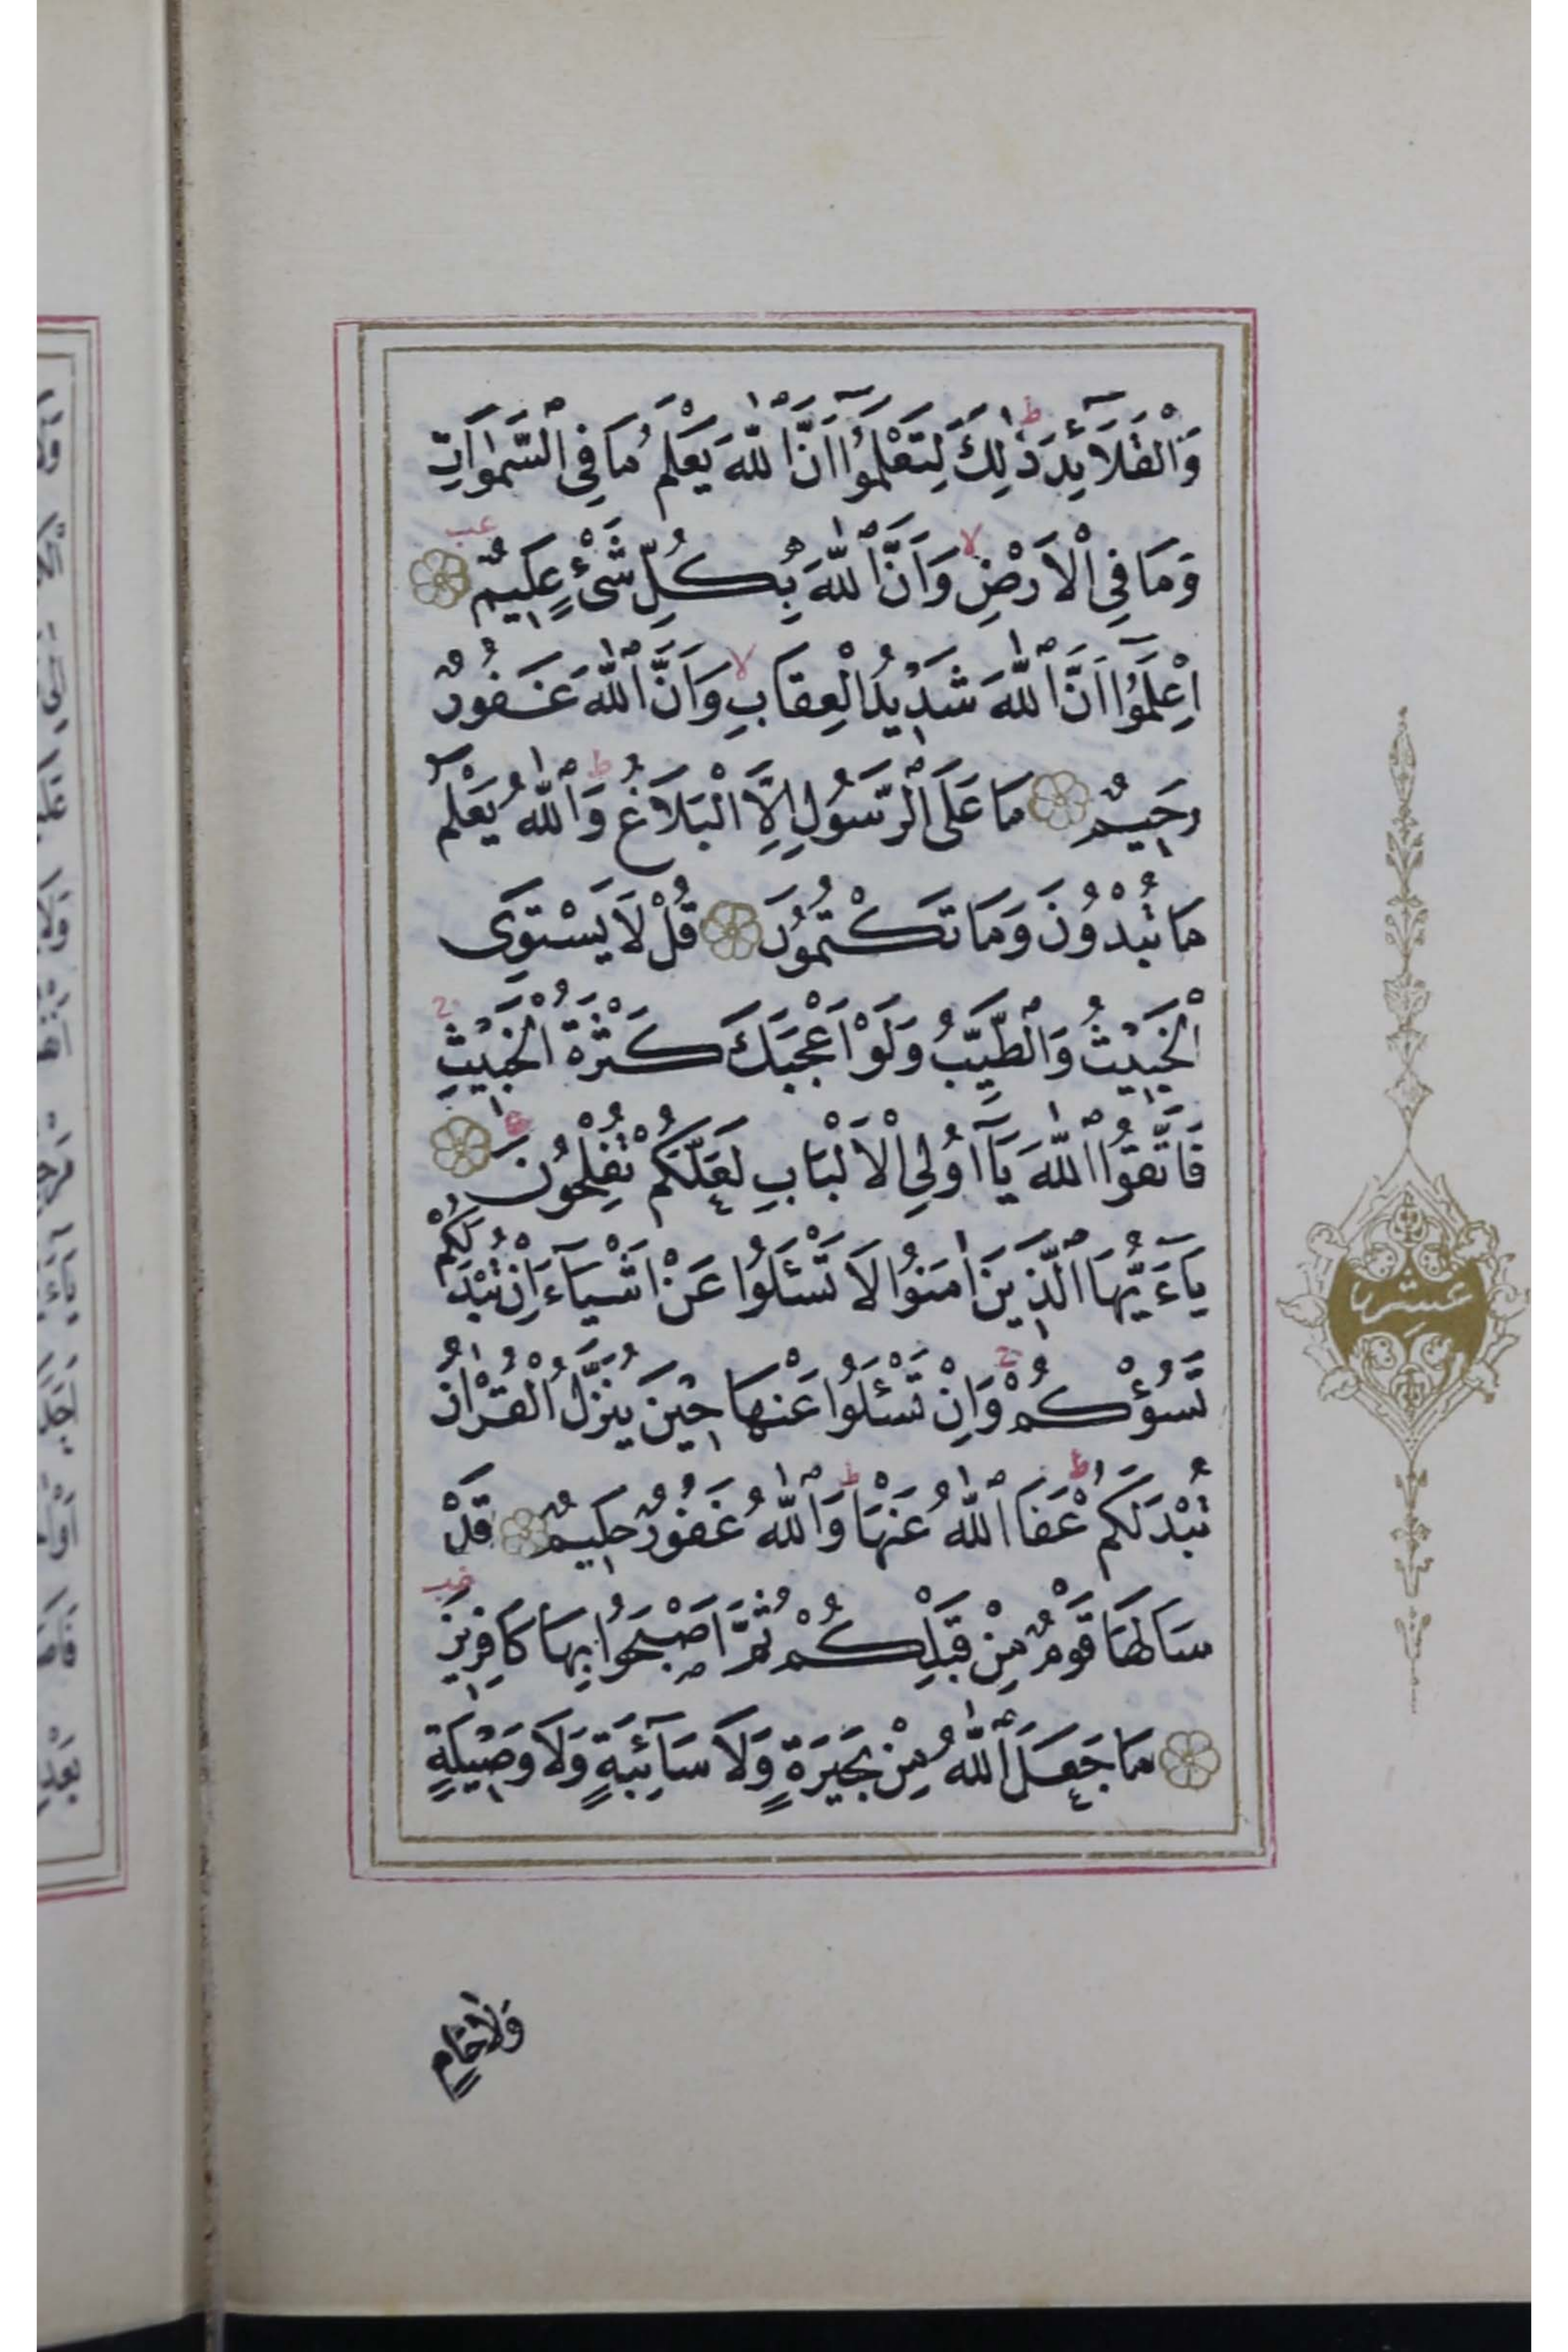 وَالْقَلَآئِدَ ذٰلِكَ لِتَعْلَمُوٓا اَنَّ اللّٰهَ يَعْلَمُ مَا فِى السَّمٰوَاتِ
وَمَا فِى الْاَرْضِ وَاَنَّ اللّٰهَ بِكُلِّ شَىْءٍ عَلِيمٌ
اِعْلَمُوٓا اَنَّ اللّٰهَ شَدِيدُ الْعِقَابِ وَاَنَّ اللّٰهَ غَفُورٌ
رَحِيمٌ مَا عَلَى الرَّسُولِ اِلَّا الْبَلَاغُ وَاللّٰهُ يَعْلَمُ
مَا تُبْدُونَ وَمَا تَكْتُمُونَ قُلْ لَا يَسْتَوِى
الْخَبِيثُ وَالطَّيِّبُ وَلَوْ اَعْجَبَكَ كَثْرَةُ الْخَبِيثِ
فَاتَّقُوا اللّٰهَ يَآ اُولِى الْاَلْبَابِ لَعَلَّكُمْ تُفْلِحُونَ
يَآءَيُّهَا الَّذِينَ اٰمَنُوا لَا تَسْئَلُوا عَنْ اَشْيَآءَ اِنْ تُبْدَ لَكُمْ
تَسُؤْكُمْ وَاِنْ تَسْئَلُوا عَنْهَا حِينَ يُنَزَّلُ الْقُرْاٰنُ
تُبْدَ لَكُمْ عَفَا اللّٰهُ عَنْهَا وَاللّٰهُ غَفُورٌ حَلِيمٌ قَدْ
سَاَلَهَا قَوْمٌ مِنْ قَبْلِكُمْ ثُمَّ اَصْبَحُوا بِهَا كَافِرِينَ
مَا جَعَلَ اللّٰهُ مِنْ بَحِيرَةٍ وَلَا سَآئِبَةٍ وَلَا وَصِيلَةٍ
وَلَا حَامٍ
عشر